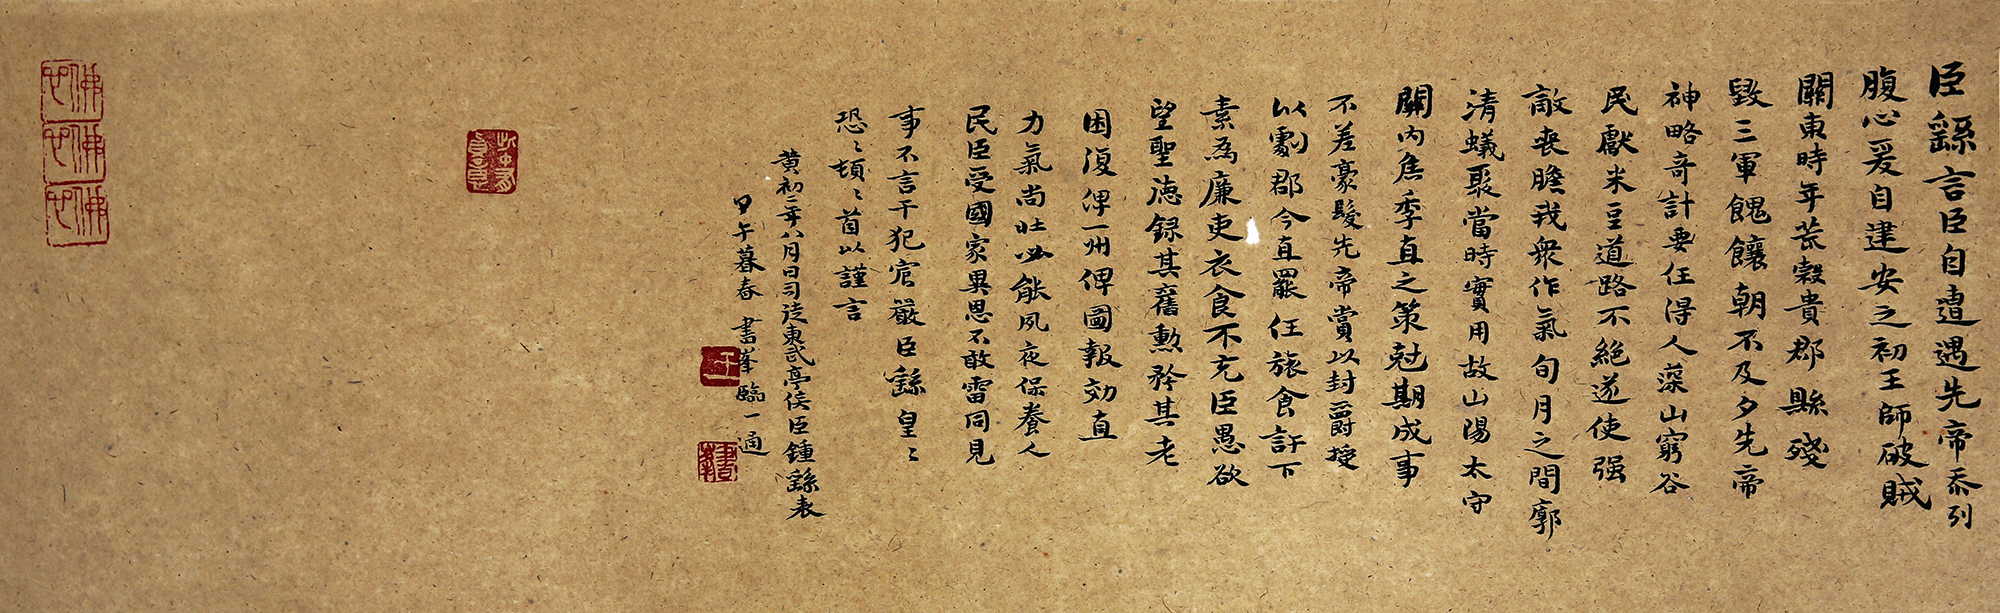 臣繇言臣自遭遇先帝忝列
腹心爰自建安之初王師破賊
關東時年荒穀貴郡縣殘
毀三軍餽饟朝不及夕先帝
神略奇計委任得人深山窮谷
民獻米豆道路不絕遂使强
敵喪膽我衆作氣旬月之間廓
清蟻聚當時實用故山陽太守
關內焦季直之策尅期成事
不差豪髮先帝賞以封爵授
以劇郡今直罷任旅食許下
素為廉吏衣食不充臣愚欲
望聖德錄其舊勳矜其老
困復俾一州俾圖報効直
力氣尚壯必能夙夜保養人
民臣受國家異恩不敢雷同見
事不言干犯宸嚴臣繇皇〻
恐〻頓〻首以謹言
黃初二年八月日司徒東武亭侯臣鍾繇表
甲午暮春 書峯臨一通